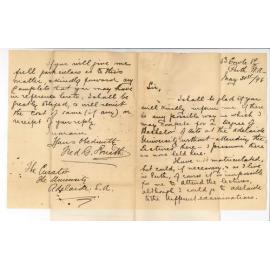 63 Goole St
Perth W.A.
May 30th /96
Sir,
I shall be glad if you
will kindly inform me if there
is any possible way in which I
may compete for a degree of
Bachelor of Laws at the Adelaide
University without attending the
Lectures there — I presume there
are none held here.
Have not matriculated,
but could, if necessary, & as I live
in Perth, of course it is impossible
for me to attend the lectures,
although I could go to Adelaide
to the different examinations.
If you will give me
full particulars as to this
matter, & kindly forward any
Pamphlets that you may have
in reference thereto, I shall be
greatly obliged, & will remit
the cost of same (if any) on
receipt of your reply.
I remain
Yours obediently
Fred C.
The Curator
The University
Adelaide, S.A.